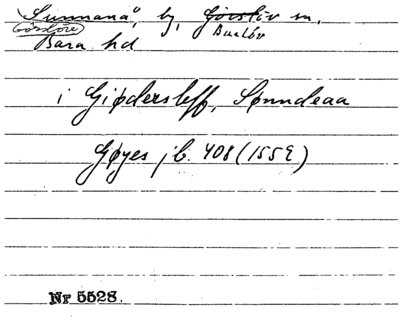 "Sunnanå", by, Görslöv sn,
(Görslöv) Burlöv
Bara hd
i Giødersleff, Sønndeaa
Gøyes jb. 408 (1552)
Nr 5528.